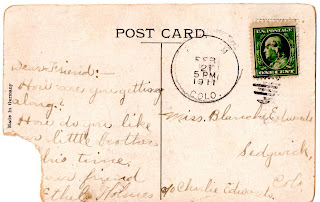 POST CARD
FEB
21
5 PM
1911
COLO.
U.S. POSTAGE
ONE CENT
Made in Germany
Dear Friend:-
How are you getting
along?
How do you like
little brother
this time.
friend
Ethel Holmes
Miss. Blanche Edwards
Sedgwick,
Colo
c/o Charlie Edwards